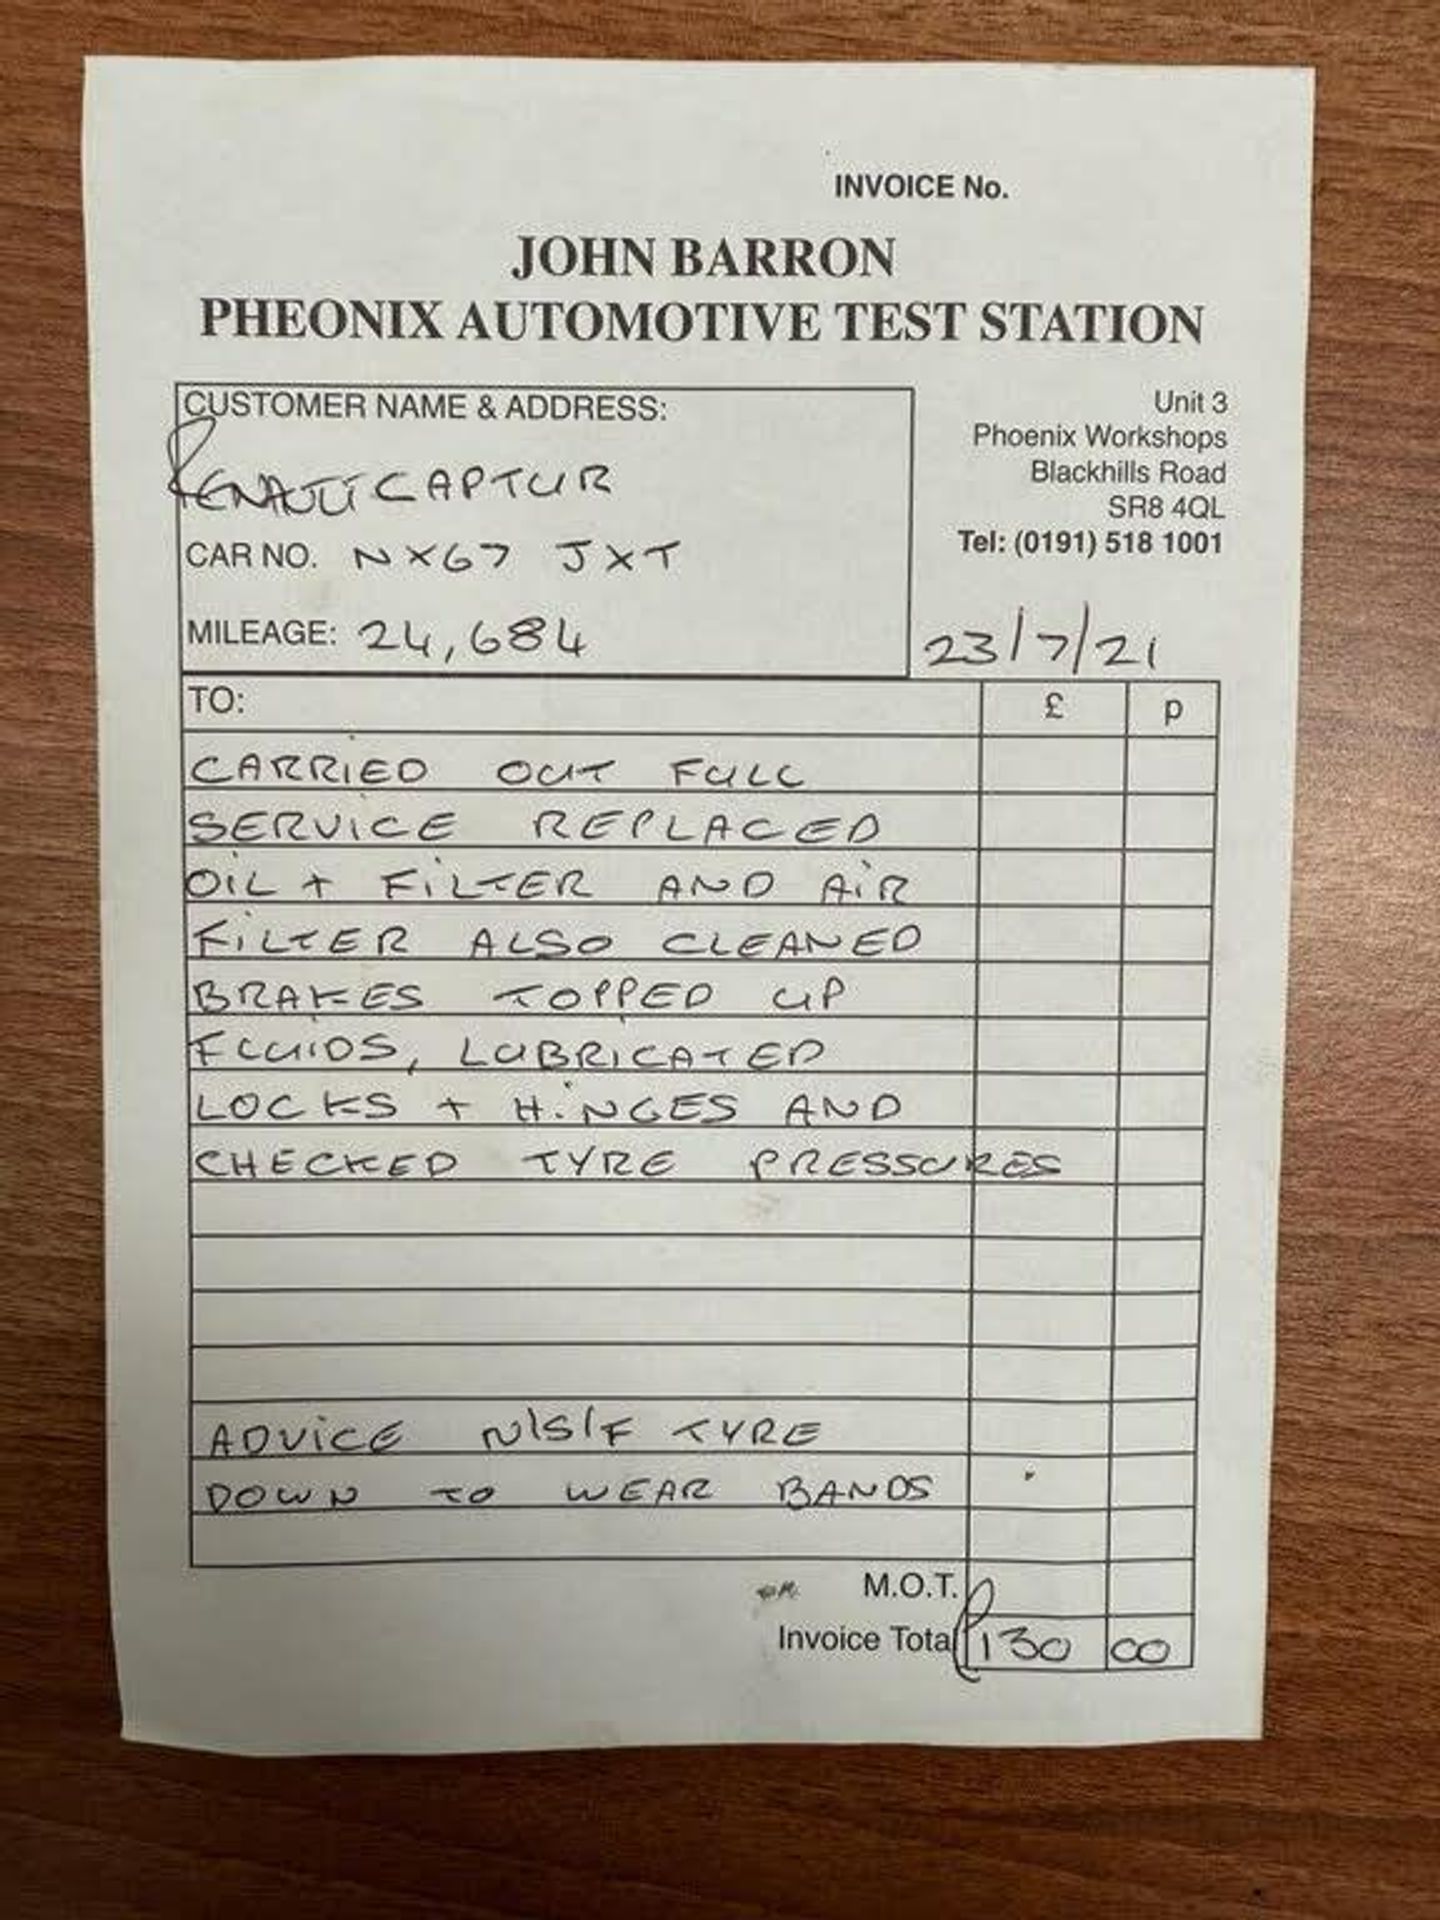 INVOICE No.
JOHN BARRON
PHEONIX AUTOMOTIVE TEST STATION
CUSTOMER NAME & ADDRESS:
RENAULT CAPTUR
CAR NO. NX67 JXT
MILEAGE: 24,684
Unit 3
Phoenix Workshops
Blackhills Road
SR8 4QL
Tel: (0191) 518 1001
23/7/21
TO: £ p
CARRIED OUT FULL
SERVICE REPLACED
OIL + FILTER AND AIR
FILTER ALSO CLEANED
BRAKES TOPPED UP
FLUIDS, LUBRICATED
LOCKS + HINGES AND
CHECKED TYRE PRESSURES
ADVICE N/S/F TYRE
DOWN TO WEAR BANDS
M.O.T.
Invoice Total £130 00